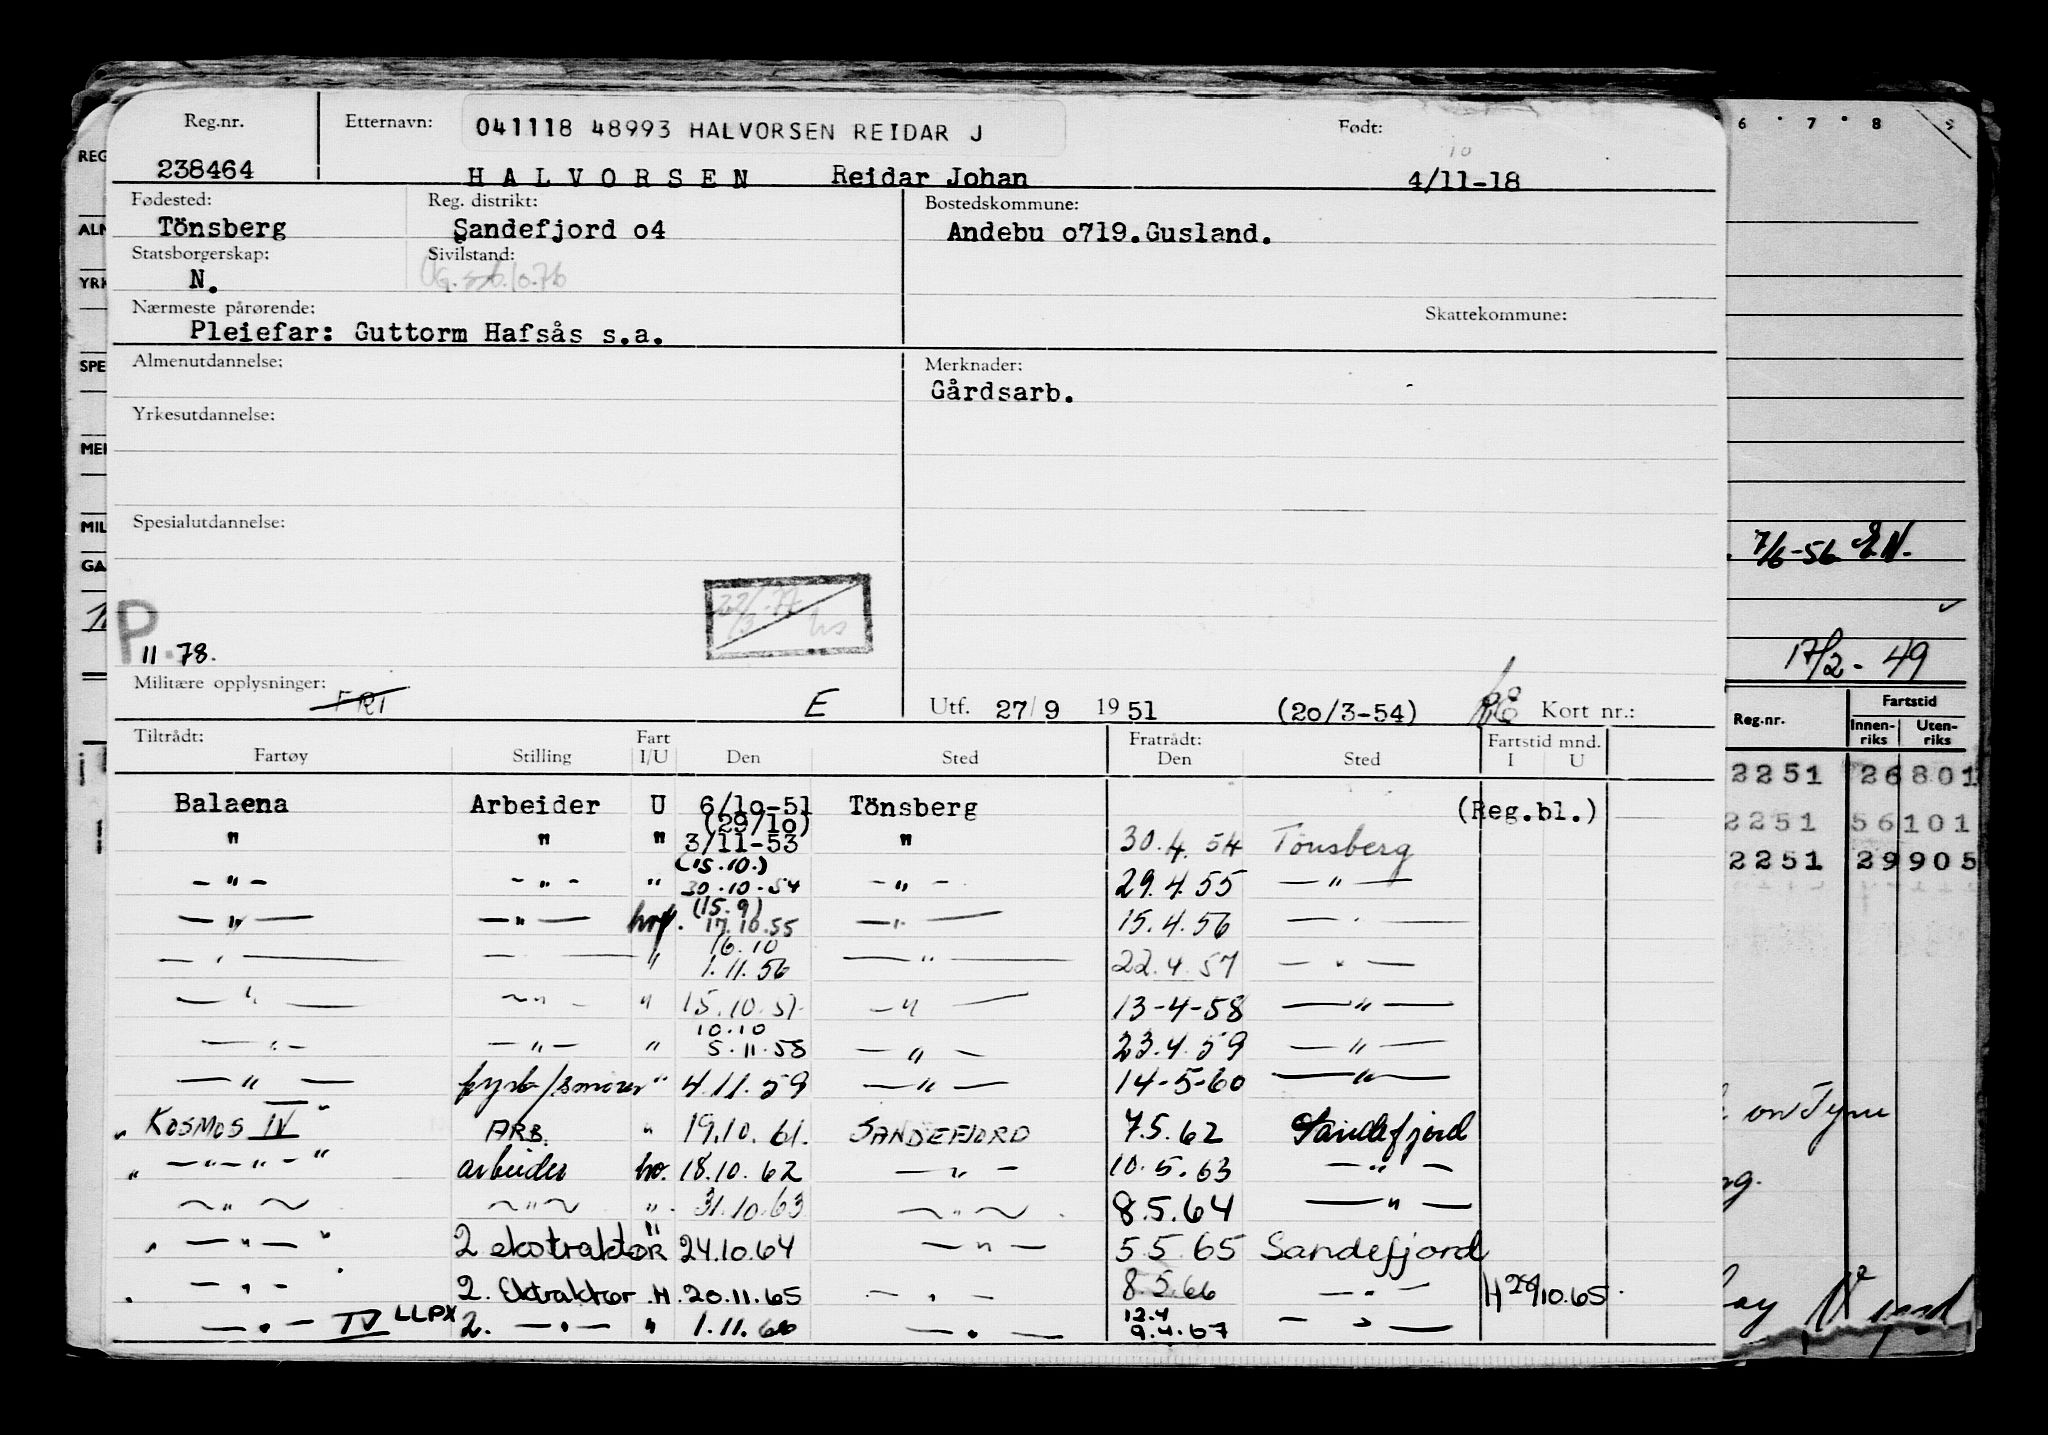 Reg.nr. Etternavn: 041118 48993 HALVORSEN REIDAR J Født:
10
238464 HALVORSEN Reidar Johan 4/11-18
Fødested: Reg. distrikt: Bostedskommune:
Tönsberg Sandefjord o4 Andebu o719.Gusland.
Statsborgerskap: Sivilstand:
N.
Nærmeste pårørende: Skattekommune:
Pleiefar: Guttorm Hafsås s.a.
Almenutdannelse: Merknader:
Gårdsarb.
Yrkesutdannelse:
Spesialutdannelse:
P
11.78.
Militære opplysninger: FRI E Utf. 27/9 1951 (20/3-54) Kort nr.:
Tiltrådt: Fart Fratrådt: Fartstid mnd.
Fartøy Stilling I/U Den Sted Den Sted I U
Balaena Arbeider U 6/10-51 Tönsberg (Reg.bl.)
(29/10)
" " " 3/11-53 " 30.4.54 Tönsberg
(15.10.)
-"- -"- " 30.10.54 -"- 29.4.55 -"-
(15.9)
-"- -"- 17.10.55 -"- 15.4.56 -"-
16.10
-"- - " 1.11.56 -"- 22.4.57 -"-
-"- -"- " 15.10.57 -"- 13-4-58 -"-
10.10
-"- -"- " 5.11.58 -"- 23.4.59 -"-
-"- fyrb/smører " 4.11.59 -"- 14-5-60 -"-
" KOSMOS IV " ARB. " 19.10.61. SANDEFJORD 7.5.62 Sandefjord
" -"-"- " arbeider hv. 18.10.62 -"- 10.5.63 -"-
-"- -"- " 31.10.63 -"- 8.5.64 -"-
" -"- " 2 ekstraktør " 24.10.64 -"- 5.5.65 Sandefjord
" -"- 2. Ektraktør H. 20.11.65 -"- 8.5.66 -"- H 29/10.65.
12.4
-"- IV LLPX 2. -"- " 1.11.66 -"- 9.4.67 -"-
6 . 7 . 8
REG
ALN
YRK
SPE
MEI
MIL
GA
7/6-56
17/2-49
Reg.nr. Fartstid
Innen-riks Uten-riks
2251 26801
2251 56101
2251 29905
on Tyne